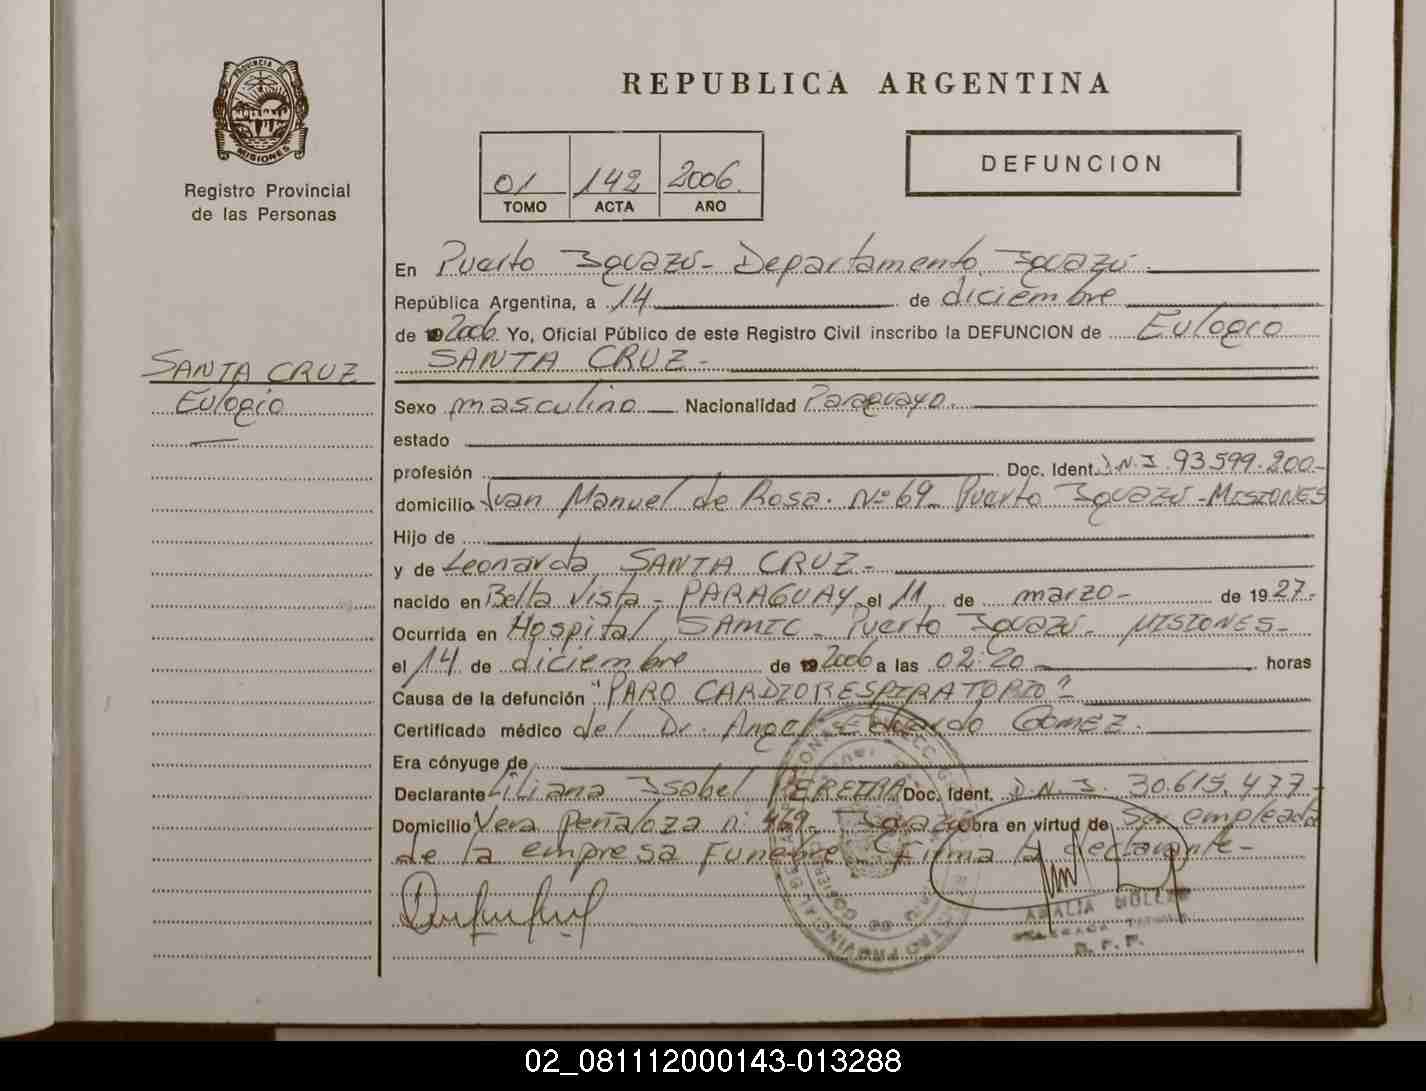 PROVINCIA DE
MISIONES
Registro Provincial
de las Personas
SANTA CRUZ
Eulogio
REPUBLICA ARGENTINA
01 142 2006.
TOMO ACTA AÑO
DEFUNCION
En Puerto Iguazú - Departamento Iguazú.
República Argentina, a 14 de diciembre
de 19 2006 Yo, Oficial Público de este Registro Civil inscribo la DEFUNCION de Eulogio
SANTA CRUZ -
Sexo masculino Nacionalidad Paraguayo.
estado
profesión Doc. Ident. D.N.I. 93.599.200-
domicilio Juan Manuel de Rosa. Nº 69 - Puerto Iguazú - MISIONES
Hijo de
y de Leonarda SANTA CRUZ -
nacido en Bella Vista - PARAGUAY, el 11 de marzo - de 19 27 -
Ocurrida en Hospital SAMIC - Puerto Iguazú - MISIONES -
el 14 de diciembre de 19 2006 a las 02:20 horas
Causa de la defunción "PARO CARDIORESPIRATORIO" -
Certificado médico del Dr. Angel Eduardo Gomez.
Era cónyuge de
Declarante Liliana Isabel PEREIRA Doc. Ident. D.N.I. 30.615.477-
Domicilio Vera Peñaloza nº 479 - Iguazú Obra en virtud de Ser empleada
de la empresa Funebre - Firma la declarante -
02_081112000143-013288